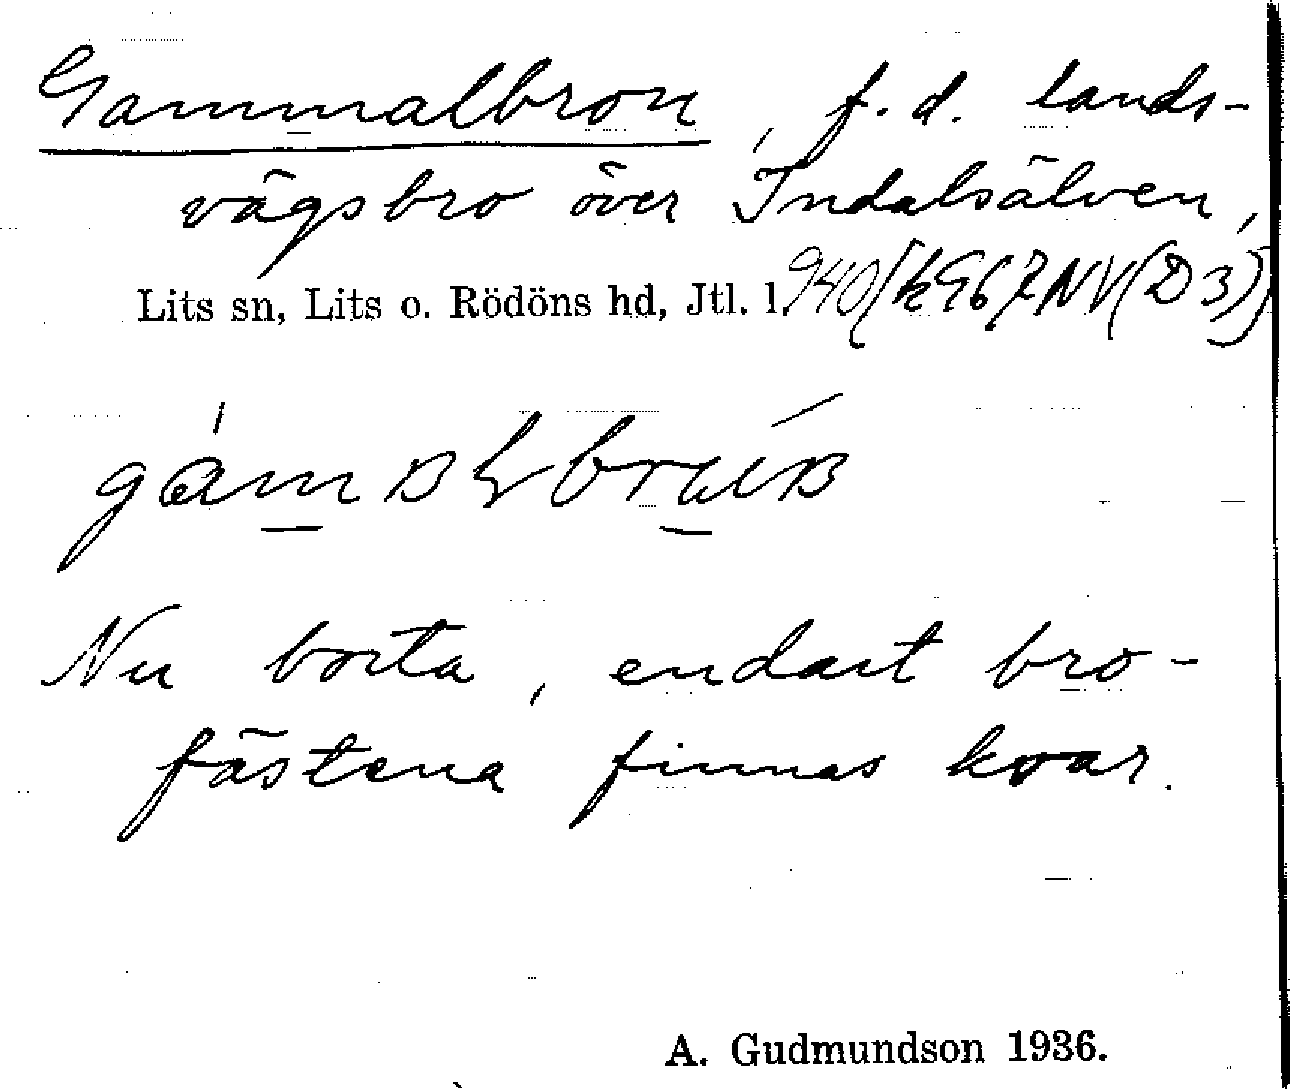 Gammalbron, f.d. lands-
vägsbro över Indalsälven,
Lits sn, Lits o. Rödöns hd, Jtl. l.
Nu borta, endast bro-
fästena finnas kvar.
A. Gudmundson 1936.